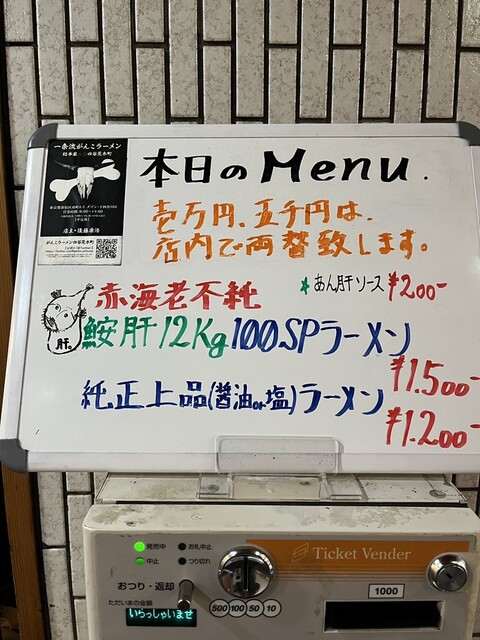 一条流がんこラーメン
総本家 四谷荒木町
店主・後藤康浩
がんこラーメン四谷荒木町
本日のMenu.
壱万円、五千円は、
店内で両替致します。
*あん肝ソース ¥200-
赤海老不純
鮟肝12Kg100SPラーメン
肝。
¥1.500-
純正上品(醤油or塩)ラーメン
¥1.200-
発売中 お札中止
中止 つり切れ
おつり・返却
ただいまの金額
いらっしゃいませ
500 100 50 10
Ticket Vender
1000